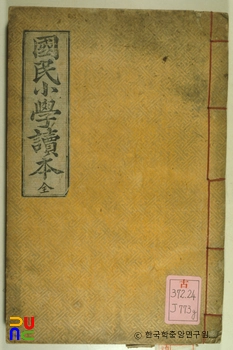 國民小學讀本 全
古
372.24
J773g
ⓒ 한국학중앙연구원